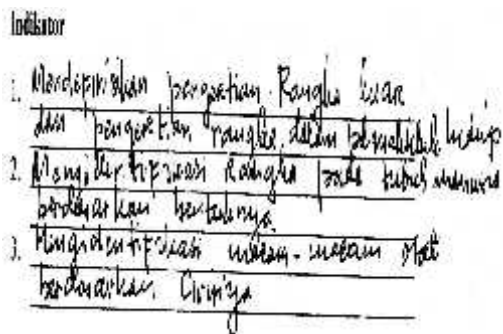 Indikator
1. Mendefinisikan pengertian Rangka luar
dan pengertian rangka dalam makhluk hidup
2. Mengidentifikasi Rangka pada tubuh manusia
berdasarkan bentuknya
3. Mengidentifikasi macam-macam otot
berdasarkan Cirinya